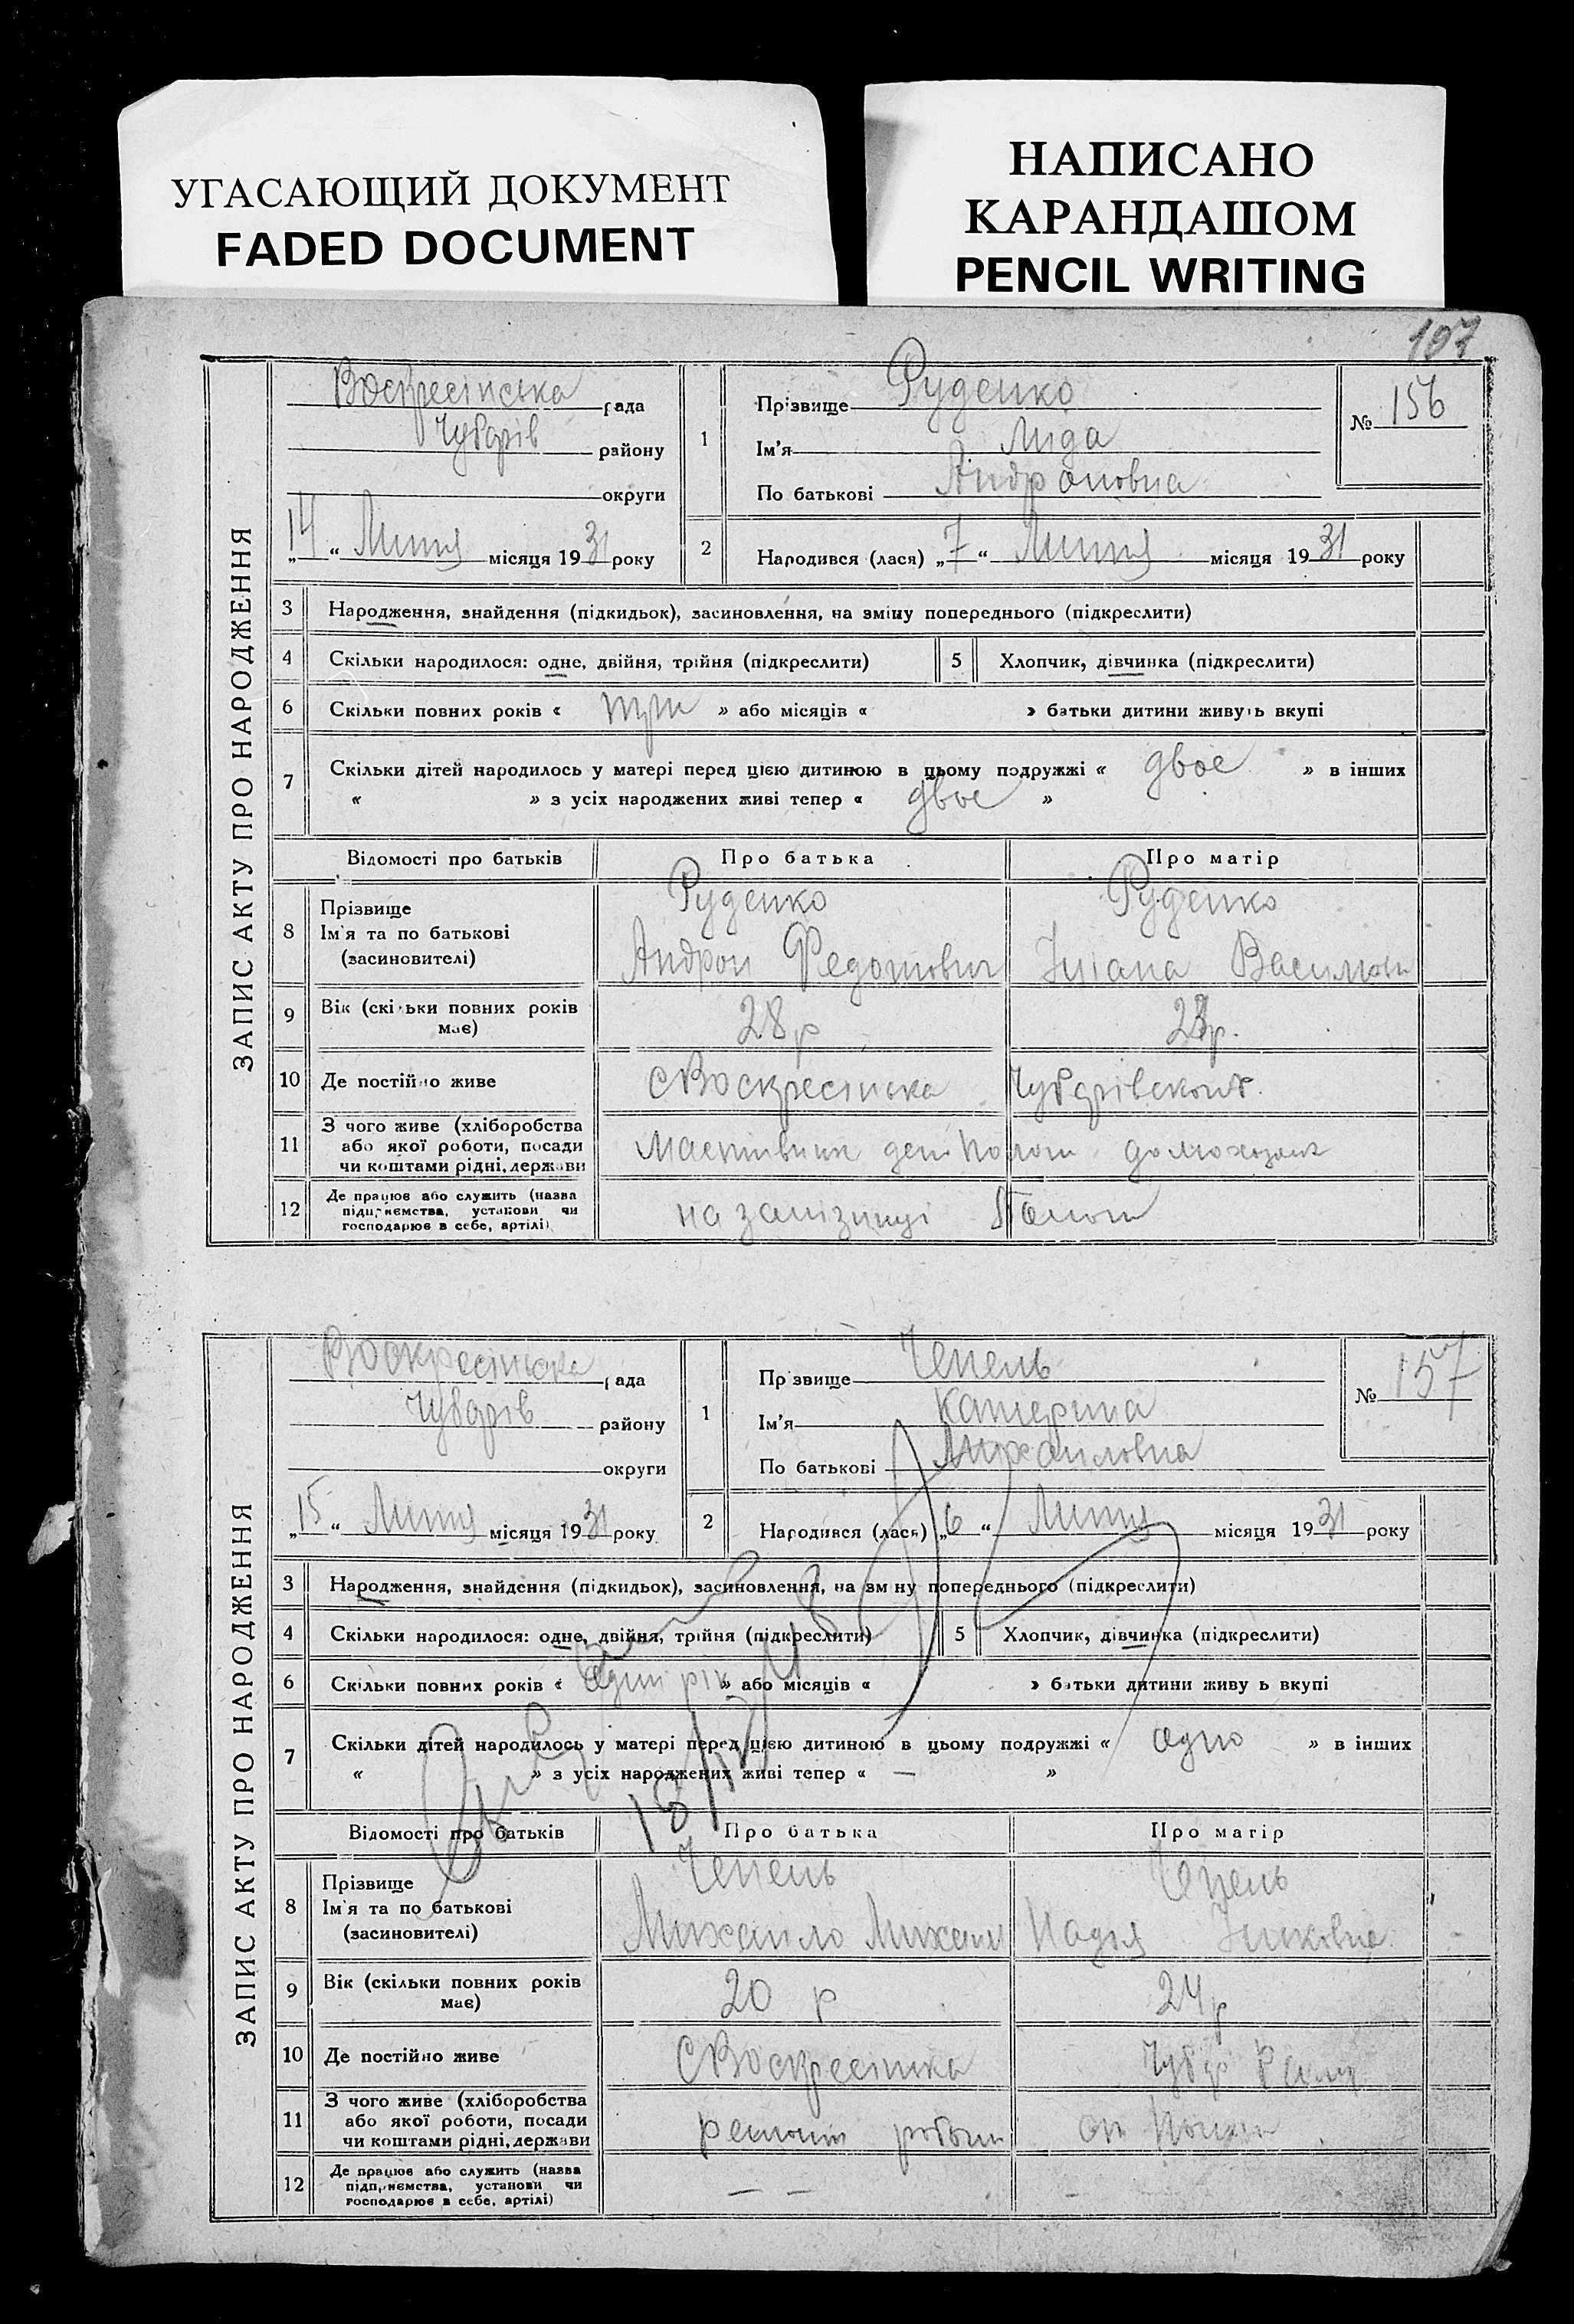 УГАСАЮЩИЙ ДОКУМЕНТ
FADED DOCUMENT
НАПИСАНО
КАРАНДАШОМ
PENCIL WRITING
107
ЗАПИС АКТУ ПРО НАРОДЖЕННЯ
Воскресінська рада
Чубарів району
округи
„14“ Липня місяця 1931 року
1
Прізвище Руденко
Ім'я Лида
По батькові Андроновна
№ 156
2 Народився (лася) „7“ Липня місяця 1931 року
3 Народження, знайдення (підкидьок), засиновлення, на зміну попереднього (підкреслити)
4 Скільки народилося: одне, двійня, трійня (підкреслити) 5 Хлопчик, дівчинка (підкреслити)
6 Скільки повних років « три » або місяців « » батьки дитини живуть вкупі
7 Скільки дітей народилось у матері перед цією дитиною в цьому подружжі « двое » в інших
« » з усіх народжених живі тепер « двое »
Відомості про батьків Про батька Про матір
8 Прізвище Руденко Руденко
Ім'я та по батькові Андрон Федотович
(засиновителі)
9 Вік (скільки повних років має) 28 р
10 Де постійно живе с Воскресінька
11 З чого живе (хліборобства
або якої роботи, посади
чи коштами рідні, держави
12 Де працює або служить (назва
підприємства, установи чи
господарює в себе, артілі)
на залізниці
ЗАПИС АКТУ ПРО НАРОДЖЕННЯ
Воскресінська рада
Чубарів району
округи
„15“ Липня місяця 1931 року
1
Прізвище Чепель
Ім'я Катерина
По батькові Михаиловна
№ 157
2 Народився (лася) „6“ Липня місяця 1931 року
3 Народження, знайдення (підкидьок), засиновлення, на зміну попереднього (підкреслити)
4 Скільки народилося: одне, двійня, трійня (підкреслити) 5 Хлопчик, дівчинка (підкреслити)
6 Скільки повних років « один рік » або місяців « » батьки дитини живуь вкупі
7 Скільки дітей народилось у матері перед цією дитиною в цьому подружжі « одно » в інших
« » з усіх народжених живі тепер « — »
Відомості про батьків Про батька Про матір
8 Прізвище Чепель Чепель
Ім'я та по батькові Михаило Михаил Надя
(засиновителі)
9 Вік (скільки повних років має) 20 р 24 р
10 Де постійно живе С Воскресінка
11 З чого живе (хліборобства
або якої роботи, посади
чи коштами рідні, держави
12 Де працює або служить (назва
підприємства, установи чи
господарює в себе, артілі)
— —